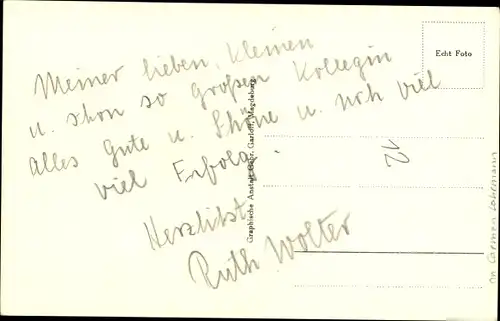 Meiner lieben, kleinen
u. schon so großen Kollegin
alles Gute u. Schöne u. noch viel
viel Erfolg.
Herzlichst
Ruth Wolter
Echt Foto
Graphische Anstalt Gebr. Garloff, Magdeburg
12
an Carmen